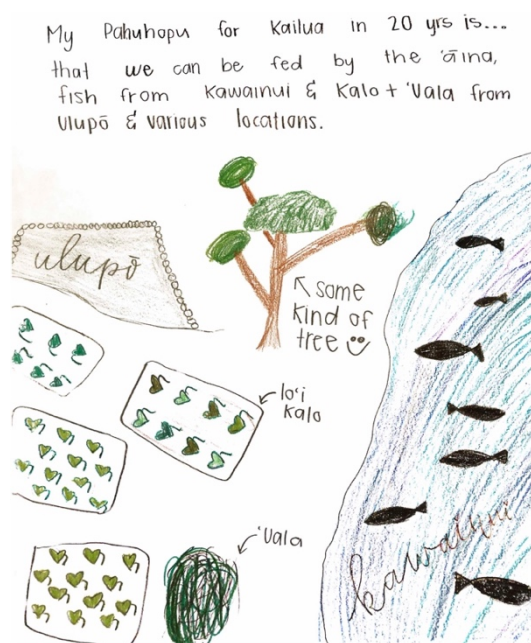 My Pahuhopu for Kailua in 20 yrs is...
that we can be fed by the ʻāina,
fish from Kawainui & Kalo + ʻUala from
Ulupō & various locations.
ulupō
some
kind of
tree
loʻi
Kalo
ʻUala
kawainui